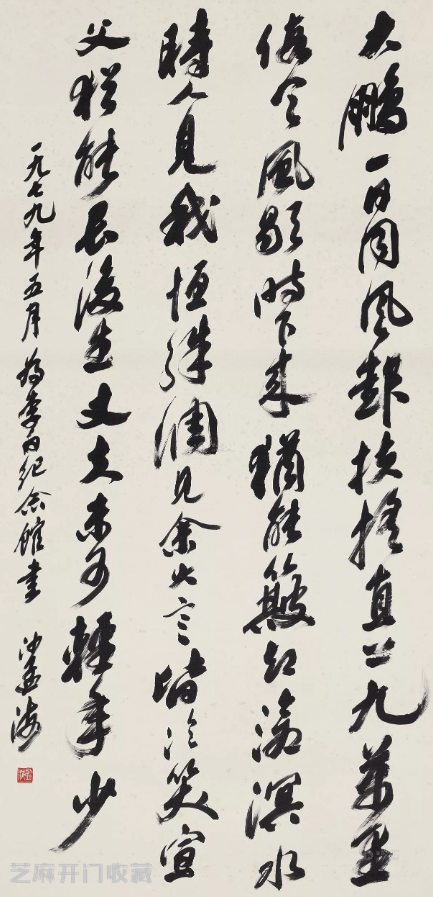 大鹏一日同风起扶摇直上九万里
假令风歇时下来犹能簸却沧溟水
时人见我恒殊调见余大言皆冷笑宣
父犹能畏后生丈夫未可轻年少
一九七九年五月为李白纪念馆书 沙孟海
芝麻开门收藏